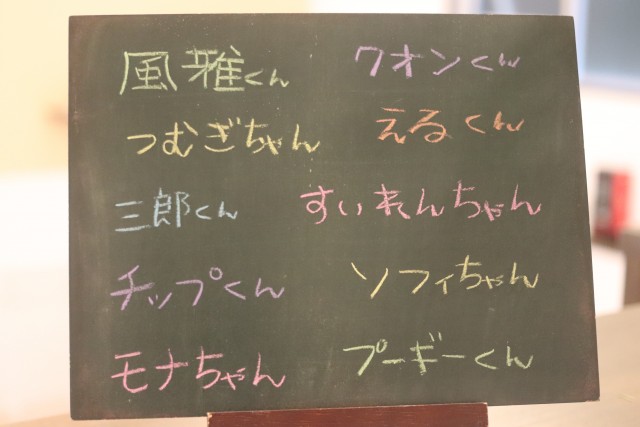 風雅くん
クオンくん
つむぎちゃん
えるくん
三郎くん
すいれんちゃん
チップくん
ソフィちゃん
モナちゃん
プーギーくん